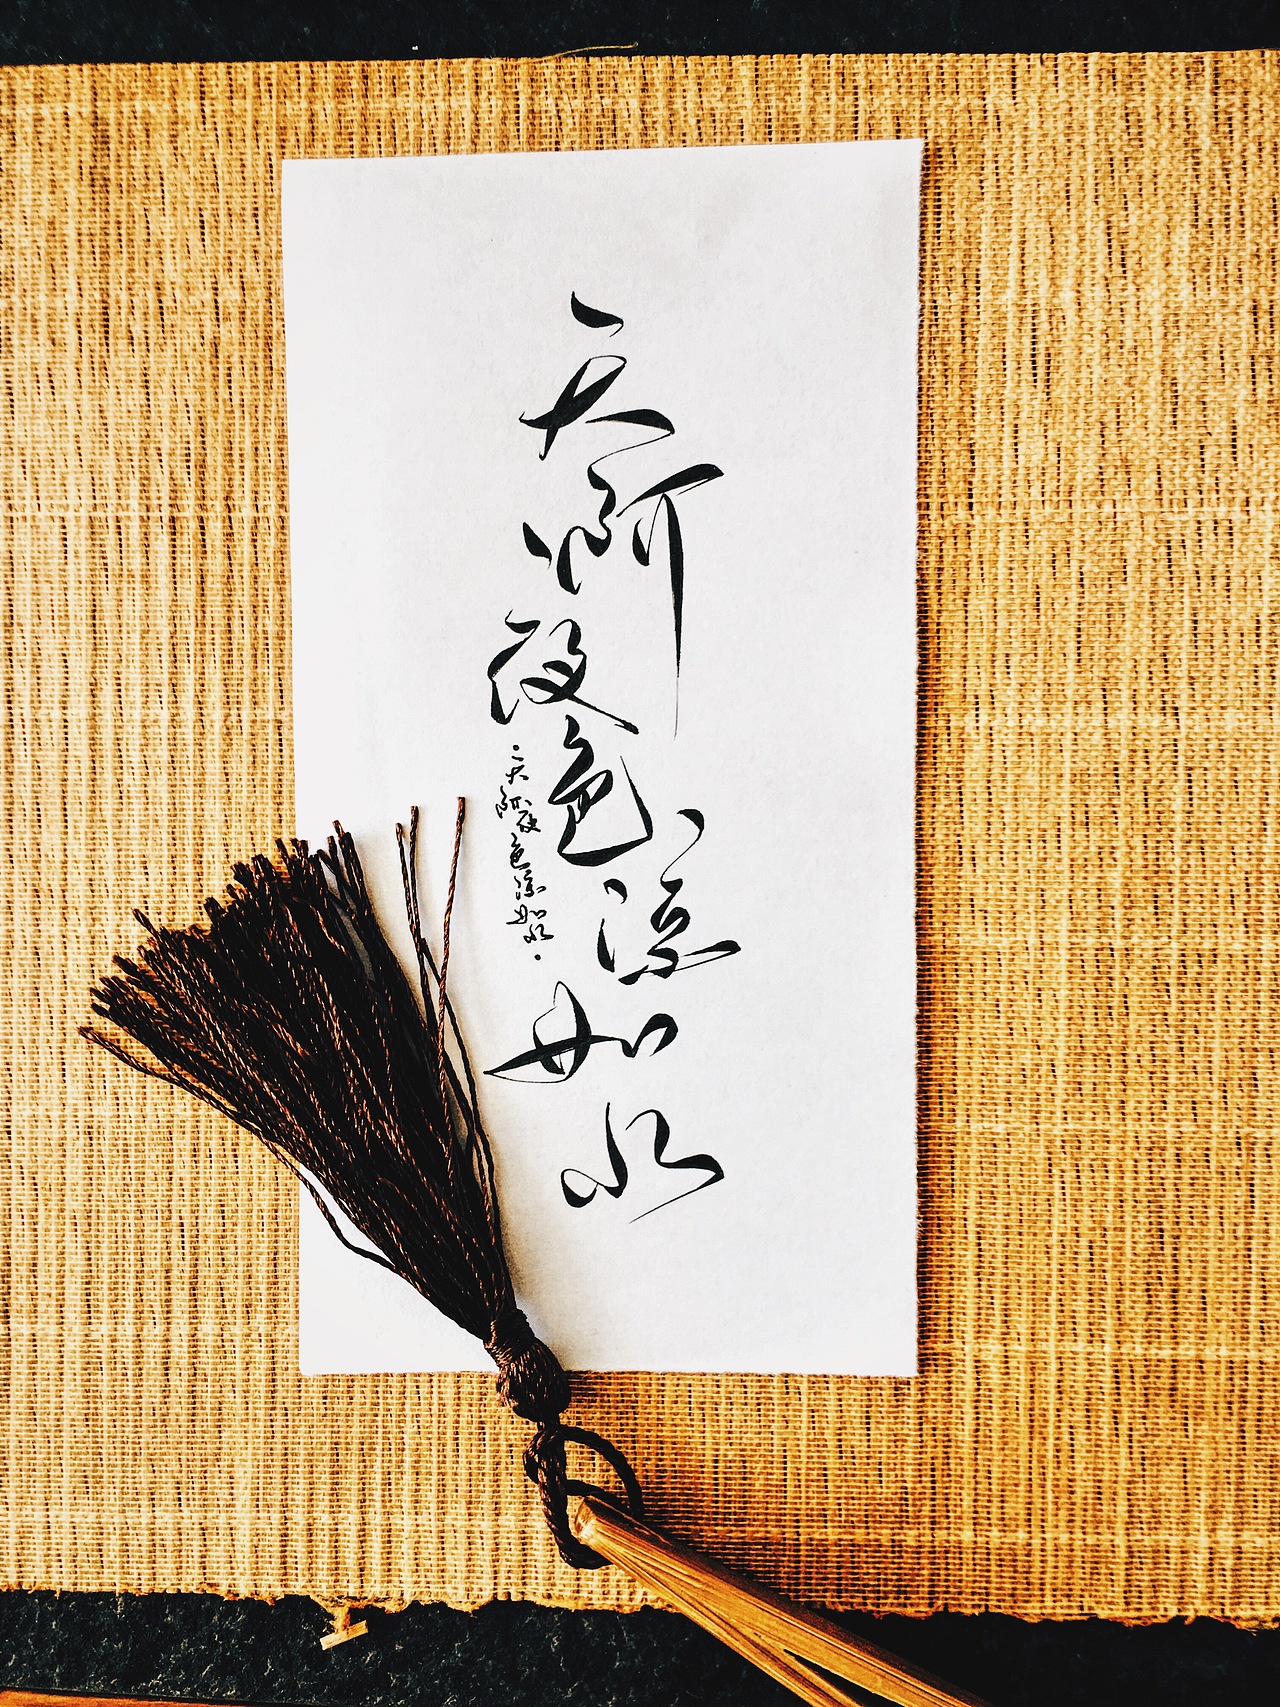 天街夜色凉如水
天街夜色凉如水